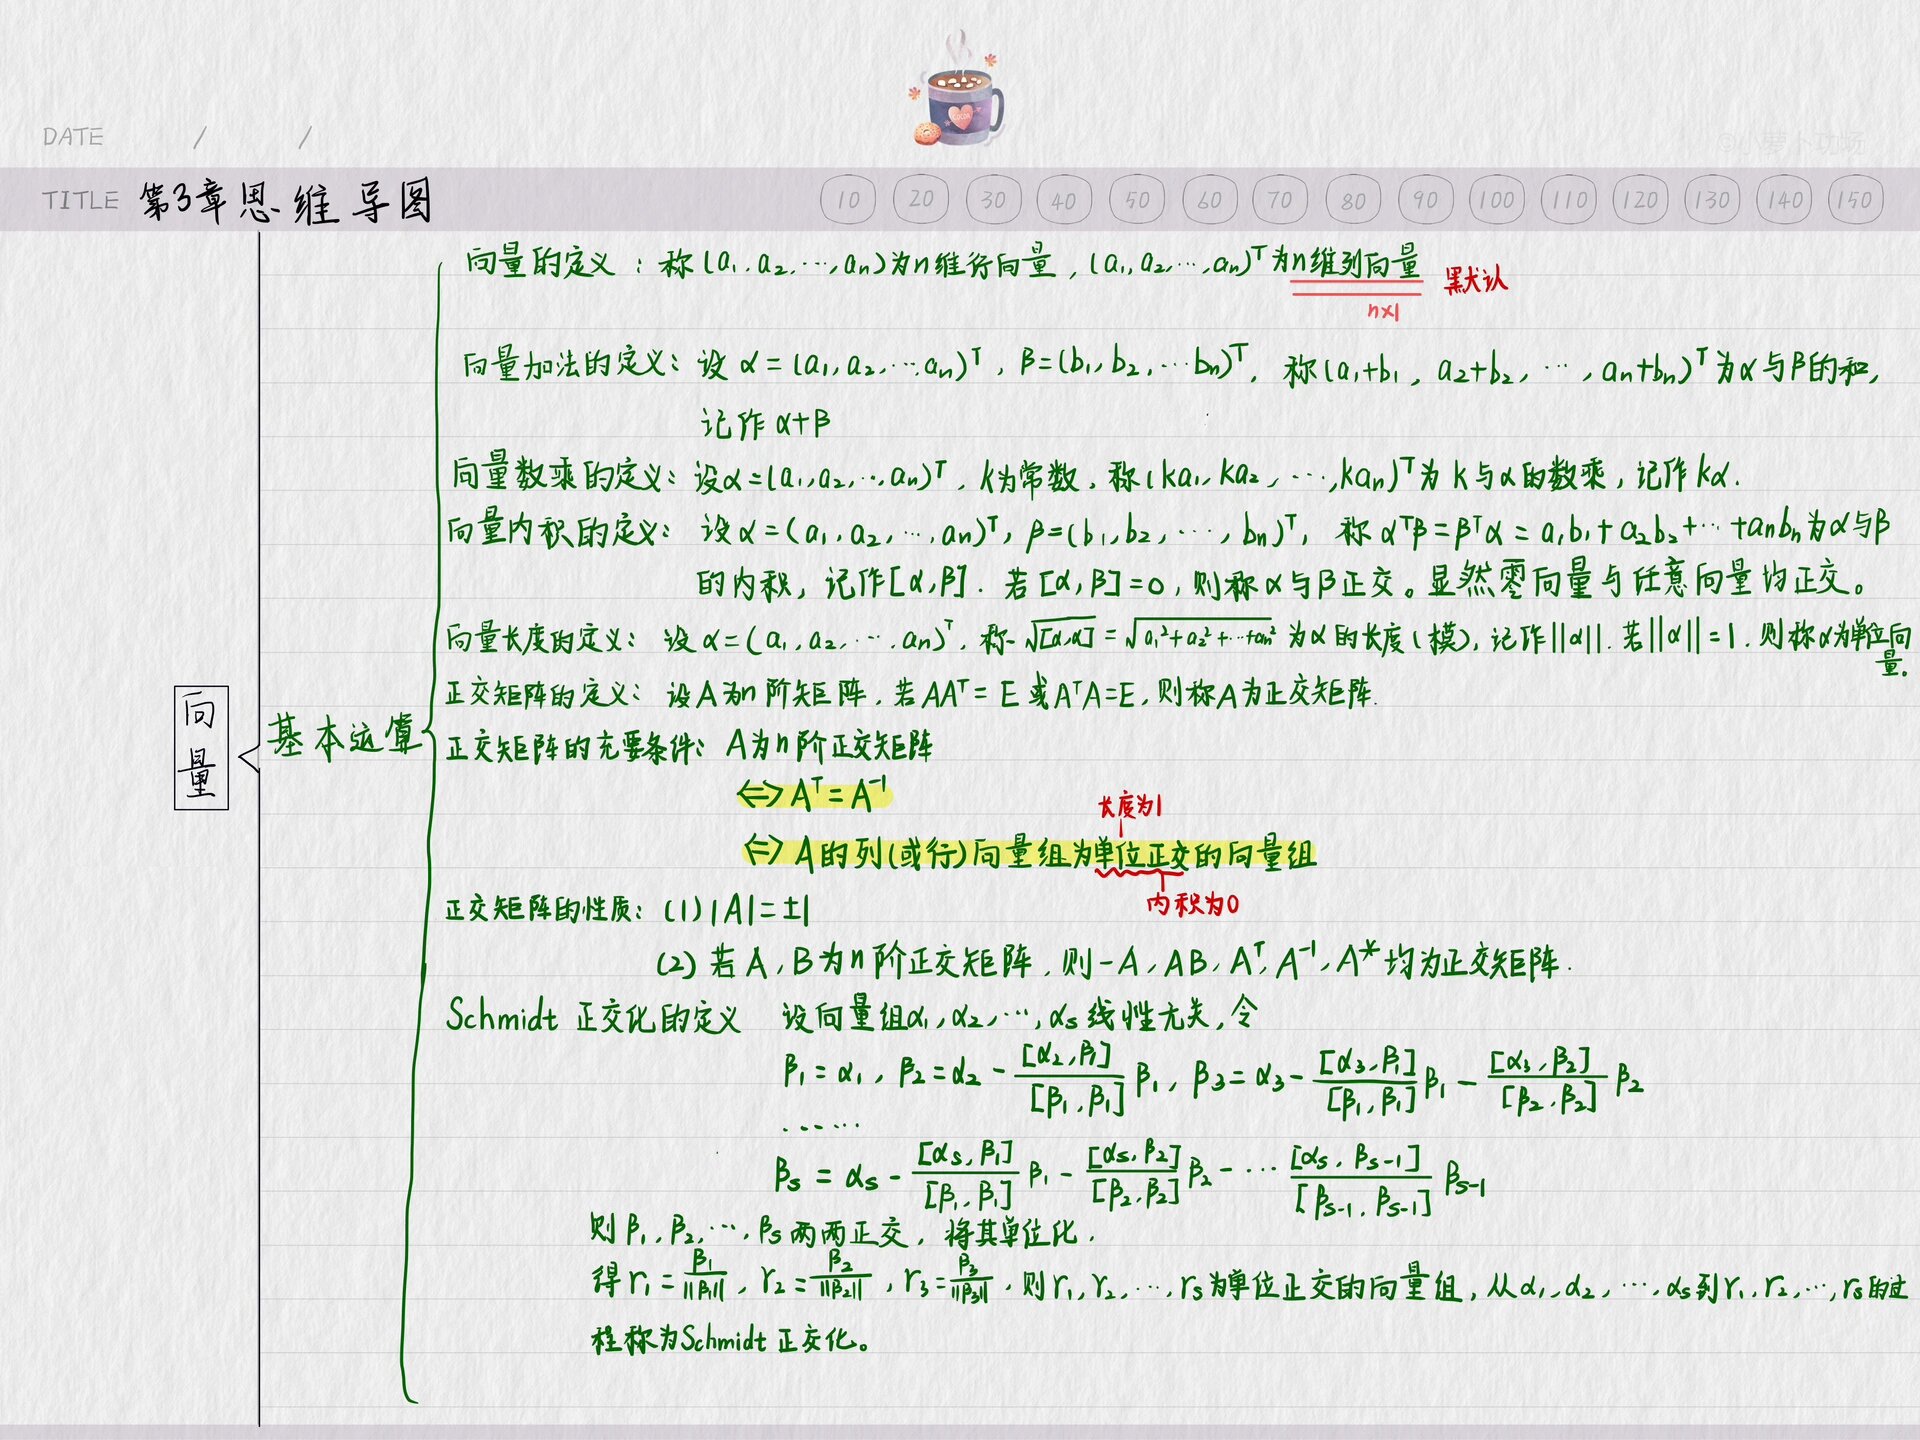 DATE / /
TITLE 第3章思维导图 10 20 30 40 50 60 70 80 90 100 110 120 130 140 150
COCOA
向量
基本运算
向量的定义：称(a₁,a₂,⋯,aₙ)为n维行向量，(a₁,a₂,⋯,aₙ)ᵀ为n维列向量 默认
n×1
向量加法的定义：设 α=(a₁,a₂,⋯,aₙ)ᵀ，β=(b₁,b₂,⋯bₙ)ᵀ，称(a₁+b₁，a₂+b₂,⋯,aₙ+bₙ)ᵀ为α与β的和，
记作 α+β
向量数乘的定义：设α=(a₁,a₂,⋯,aₙ)ᵀ，k为常数，称(ka₁,ka₂,⋯,kaₙ)ᵀ为 k与α的数乘，记作 kα.
向量内积的定义：设 α=(a₁,a₂,⋯,aₙ)ᵀ，β=(b₁,b₂,⋯,bₙ)ᵀ，称 αᵀβ=βᵀα=a₁b₁+a₂b₂+⋯+aₙbₙ为α与β
的内积，记作[α,β]. 若[α,β]=0，则称α与β正交。显然零向量与任意向量均正交。
向量长度的定义：设 α=(a₁,a₂,⋯,aₙ)ᵀ，称 √[α,α] = √(a₁²+a₂²+⋯+aₙ²) 为α的长度(模)，记作||α||. 若||α||=1，则称α为单位向
量.
正交矩阵的定义：设A为n阶矩阵，若AAᵀ=E或AᵀA=E，则称A为正交矩阵.
正交矩阵的充要条件：A为n阶正交矩阵
⇔ Aᵀ=A⁻¹
长度为1
⇔ A的列(或行)向量组为单位正交的向量组
内积为0
正交矩阵的性质：(1) |A|=±1
(2) 若A,B为n阶正交矩阵，则-A,AB,Aᵀ,A⁻¹,A*均为正交矩阵.
Schmidt 正交化的定义 设向量组α₁,α₂,⋯,αₛ线性无关，令
β₁=α₁，β₂=α₂-[α₂,β₁]/[β₁,β₁] β₁，β₃=α₃-[α₃,β₁]/[β₁,β₁] β₁-[α₃,β₂]/[β₂,β₂] β₂
⋯⋯
βₛ=αₛ-[αₛ,β₁]/[β₁,β₁] β₁-[αₛ,β₂]/[β₂,β₂] β₂-⋯[αₛ,βₛ₋₁]/[βₛ₋₁,βₛ₋₁] βₛ₋₁
则β₁,β₂,⋯,βₛ两两正交，将其单位化.
得r₁=β₁/||β₁||，r₂=β₂/||β₂||，r₃=β₃/||β₃||，则r₁,r₂,⋯,rₛ为单位正交的向量组，从α₁,α₂,⋯,αₛ到r₁,r₂,⋯,rₛ的过
程称为Schmidt 正交化。